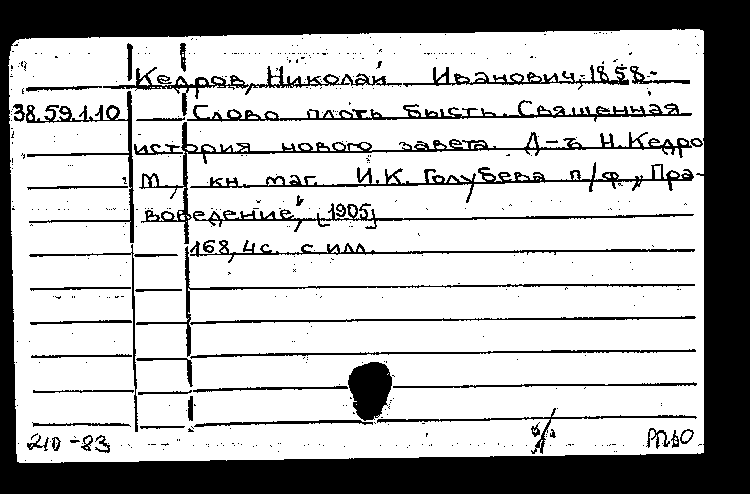 Кедров, Николай Иванович, 1858-
38.59.1.10 Слово плоть бысть. Священная
история нового завета. Д-ъ Н. Кедро
М., кн. маг. И.К. Голубева п/ф „Пра-
воведение", [1905]
168, 4 с. с илл.
210-83